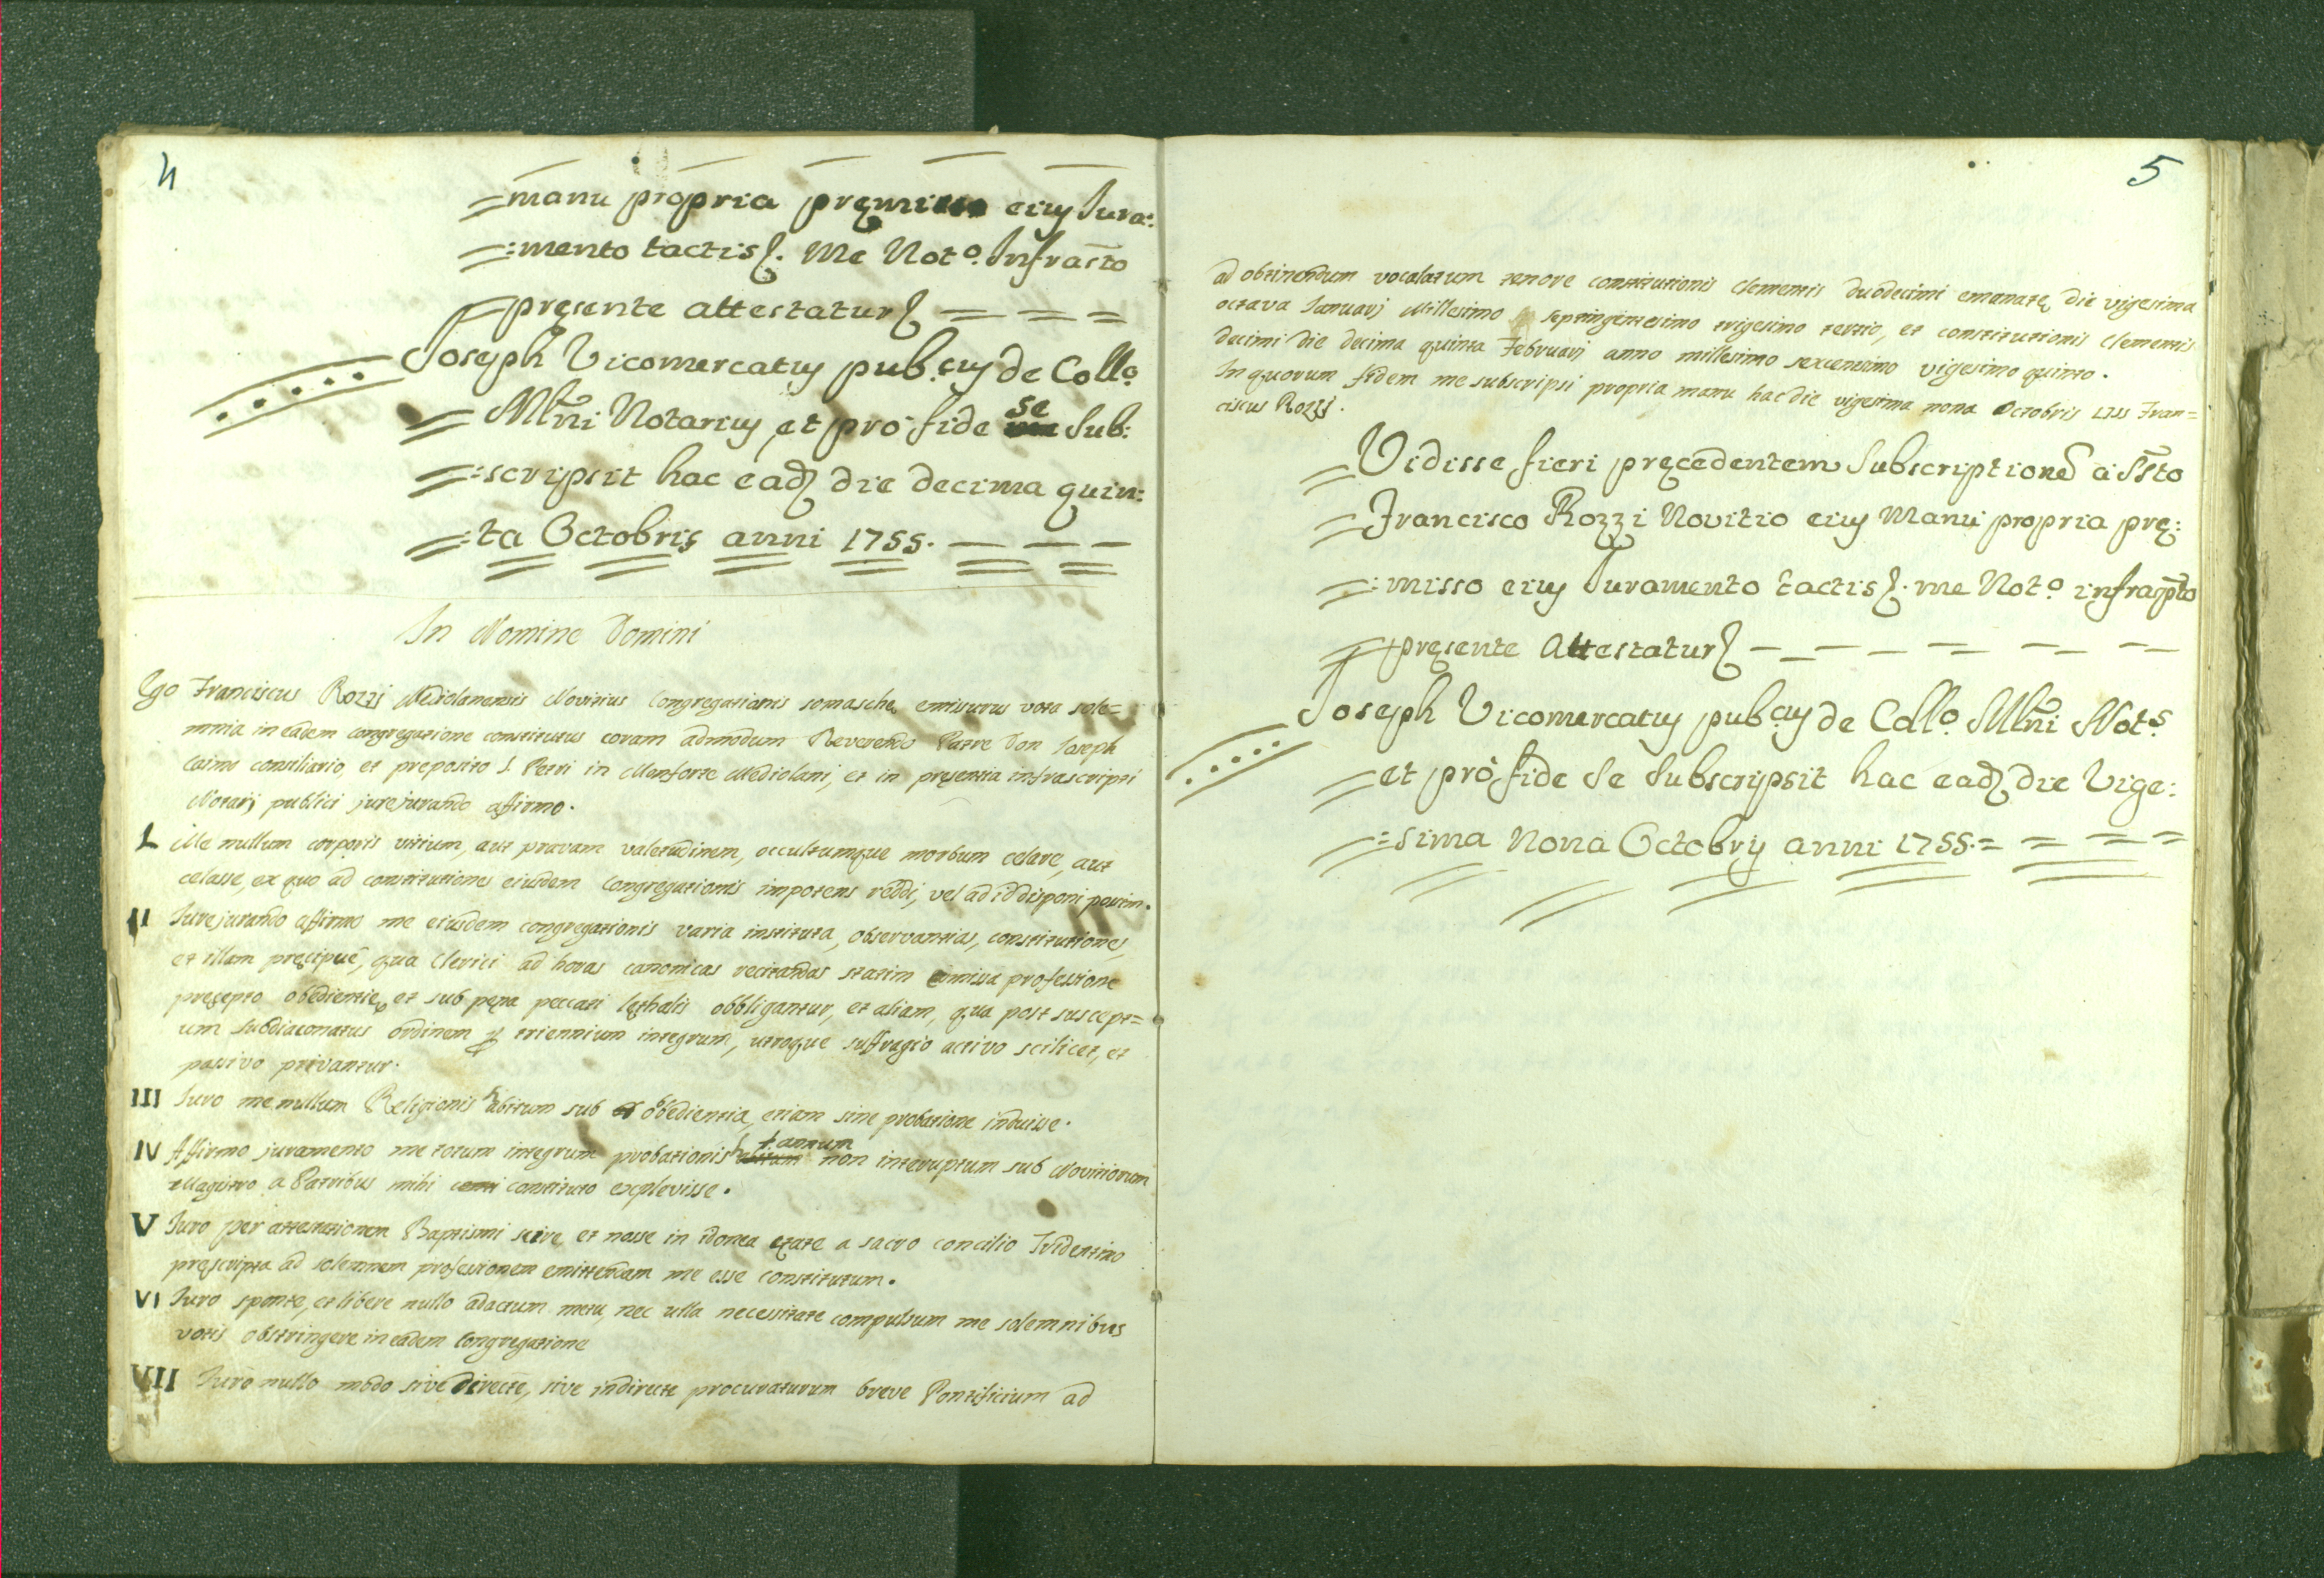 4
=manu propria pręmisso eius Iura:
=:mento tactis ſ. me Not.º Infraſto
pręsente attestatur
Joseph Vicomercatus pub.cus de Coll.º
Mlni Notarius, et pro fide se Sub:
=:scripsit hac ead die decima quin:
=:ta Octobris anni 1755.
In Nomine Domini
Ego Franciscus Rozzi Mediolanensis Novitius Congregationis somaschę emissurus vota sole=
mnia in eadem congregatione constitutus coram admodum Reverendo Patre Don Ioseph
Caimo consiliario, et preposito S. Petri in Monforte Mediolani, et in pręsentia infrascripti
Notarij publici jurejurando affirmo.
I. Me nullum corporis vitium, aut pravam valetudinem, occultumque morbum celare, aut
celasse, ex quo ad constitutiones eiusdem Congregationis impotens reddi, vel ad id disponi possim.
II Iurejurando affirmo me eiusdem congregationis varia instituta, observantias, constitutiones,
et illam pręcipuè, qua Clerici ad horas canonicas recitandas statim emissa professione
pręcepto obedientię, et sub pęna peccati lęthalis obbligantur, et aliam, qua post suscept=
um subdiaconatus ordinem per triennium integrum, utroque suffragio activo scilicet, et
passivo privantur.
III Iuro me nullum Religionis habitum sub obedientia, etiam sine probatione induisse.
IV Affirmo juramento me totum integrum probationis annum non interuptum sub Novitiorum
Magistro a Patribus mihi constituto explevisse.
V Iuro per attestationem Baptismi scire et nosse in idonea ętate a sacro concilio Tridentino
pręscripta ad solemnem professionem emittendam me esse constitutum.
VI Iuro sponte, et libere nullo adactum metu, nec ulla necessitate compulsum me solemnibus
votis obstringere in eadem Congregatione
VII Iuro nullo modo sive directe, sive indirecte procuraturum breve Pontificium ad
5
ad obtinendum vocalatum tenore constitutionis Clementis duodecimi emanatę die vigesima
octava Ianuarij Millesimo septingentesimo trigesimo tertio, et constitutionis Clementis
decimi die decima quinta Februarij anno millesimo sexcentesimo vigesimo quinto.
In quorum fidem me subscripsi propria manu hac die vigesima nona Octobris 1755 Fran=
ciscus Rozzi.
Vidisse fieri pręcedentem Subscriptionē a sśto
Francisco Rozzi Novitio eius Manu propria prę:
=:misso eius Iuramento tactis ſ. me Not.º infrapto
pręsente Attestatur
Joseph Vicomercatus pub.cus de Coll.º Mlni Not.s
et pro fide se subscripsit hac ead die Vige:
=:sima Nona Octobris anni 1755.